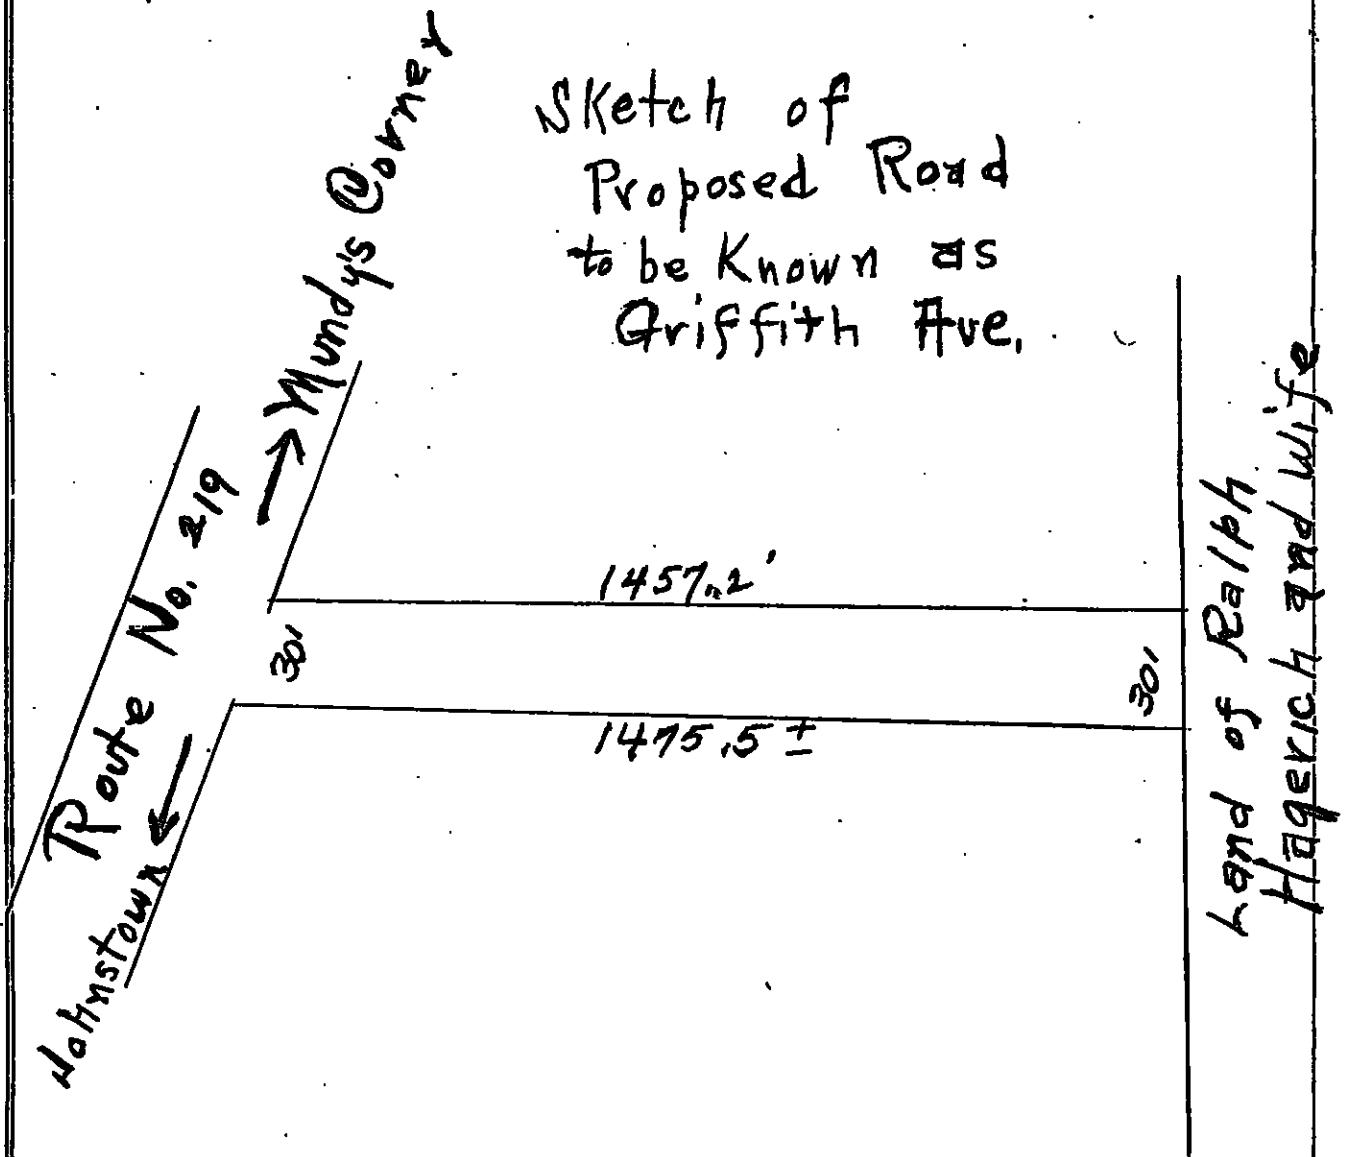 Sketch of
Proposed Road
to be Known as
Griffith Ave.
Mundy's Corner
Route No. 219
Johnstown
1457.2'
30'
30'
1475.5 ±
Land of Ralph
Hagerich and wife